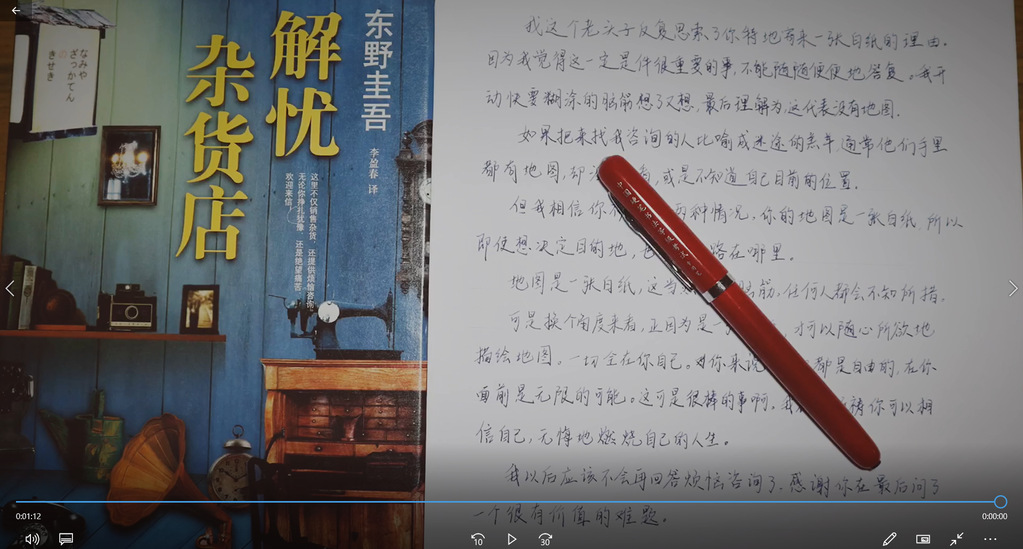 なみや
ざっかてん
の
きせき
解忧
杂货店
东野圭吾
李盈春 译
这里不仅销售杂货，还提供烦恼咨询。
无论你挣扎犹豫，还是绝望痛苦，
欢迎来信！
我这个老头子反复思索了你特地寄来一张白纸的理由。
因为我觉得这一定是件很重要的事，不能随随便便地答复。我开
动快要糊涂的脑筋想了又想，最后理解为这代表没有地图。
如果把来找我咨询的人比喻成迷途的羔羊，通常他们手里
都有地图，却没 看，或是不知道自己目前的位置。
但我相信你 两种情况。你的地图是一张白纸，所以
即使想决定目的地，也 路在哪里。
地图是一张白纸，这当 脑筋，任何人都会不知所措。
可是换个角度来看，正因为是一 ，才可以随心所欲地
描绘地图。一切全在你自己。对你来说 都是自由的，在你
面前是无限的可能。这可是很棒的事啊。我 祷你可以相
信自己，无悔地燃烧自己的人生。
我以后应该不会再回答烦恼咨询了。感谢你在最后问了
一个很有价值的难题。
0:01:12
0:00:00
10
30